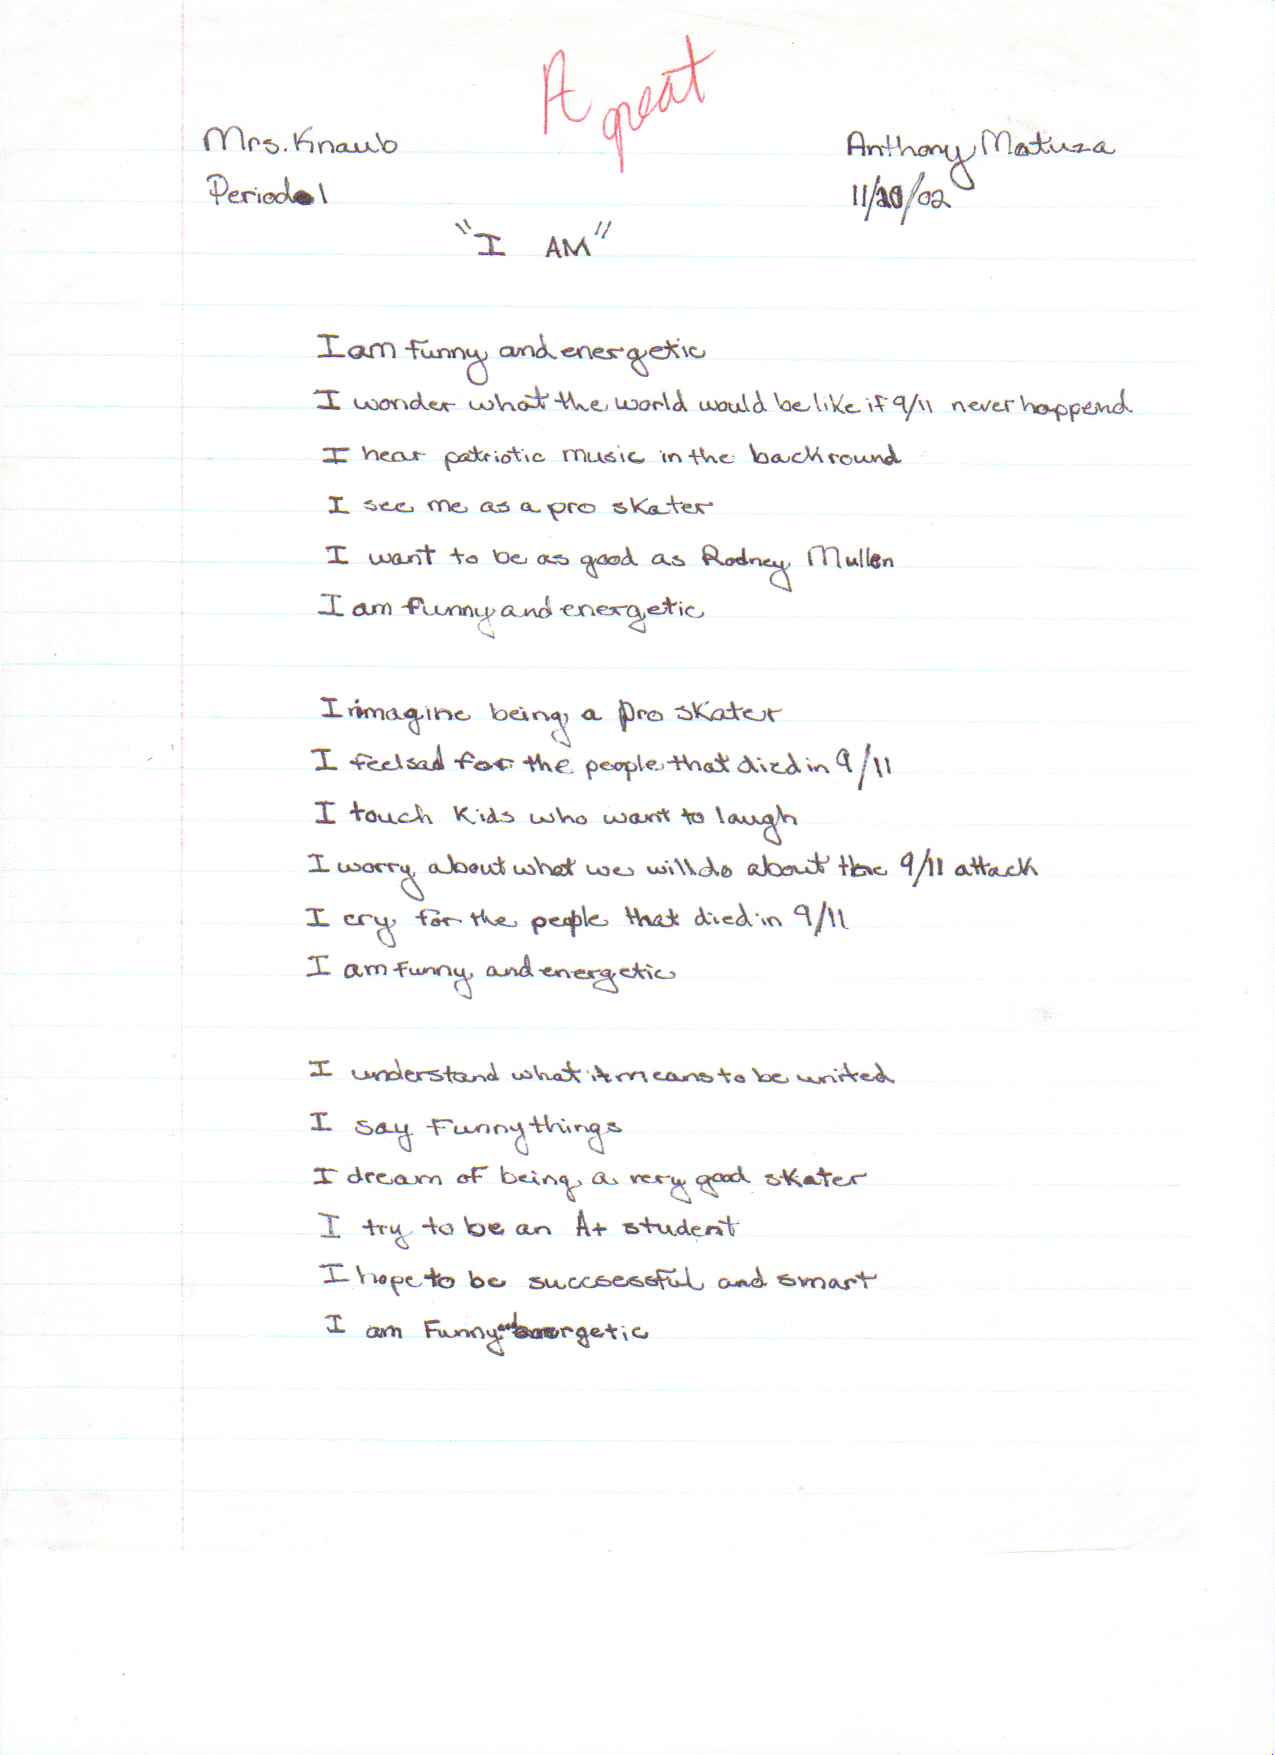 A great
Mrs. Knaub Anthony Matuza
Period 1 11/20/02
"I AM"
I am funny and energetic
I wonder what the world would be like if 9/11 never happend
I hear patriotic music in the backround
I see me as a pro skater
I want to be as good as Rodney Mullen
I am funny and energetic
I imagine being a pro skater
I feel sad for the people that died in 9/11
I touch kids who want to laugh
I worry about what we will do about the 9/11 attack
I cry for the people that died in 9/11
I am funny and energetic
I understand what it means to be united
I say funny things
I dream of being a very good skater
I try to be an A+ student
I hope to be succsessful and smart
I am Funny and energetic